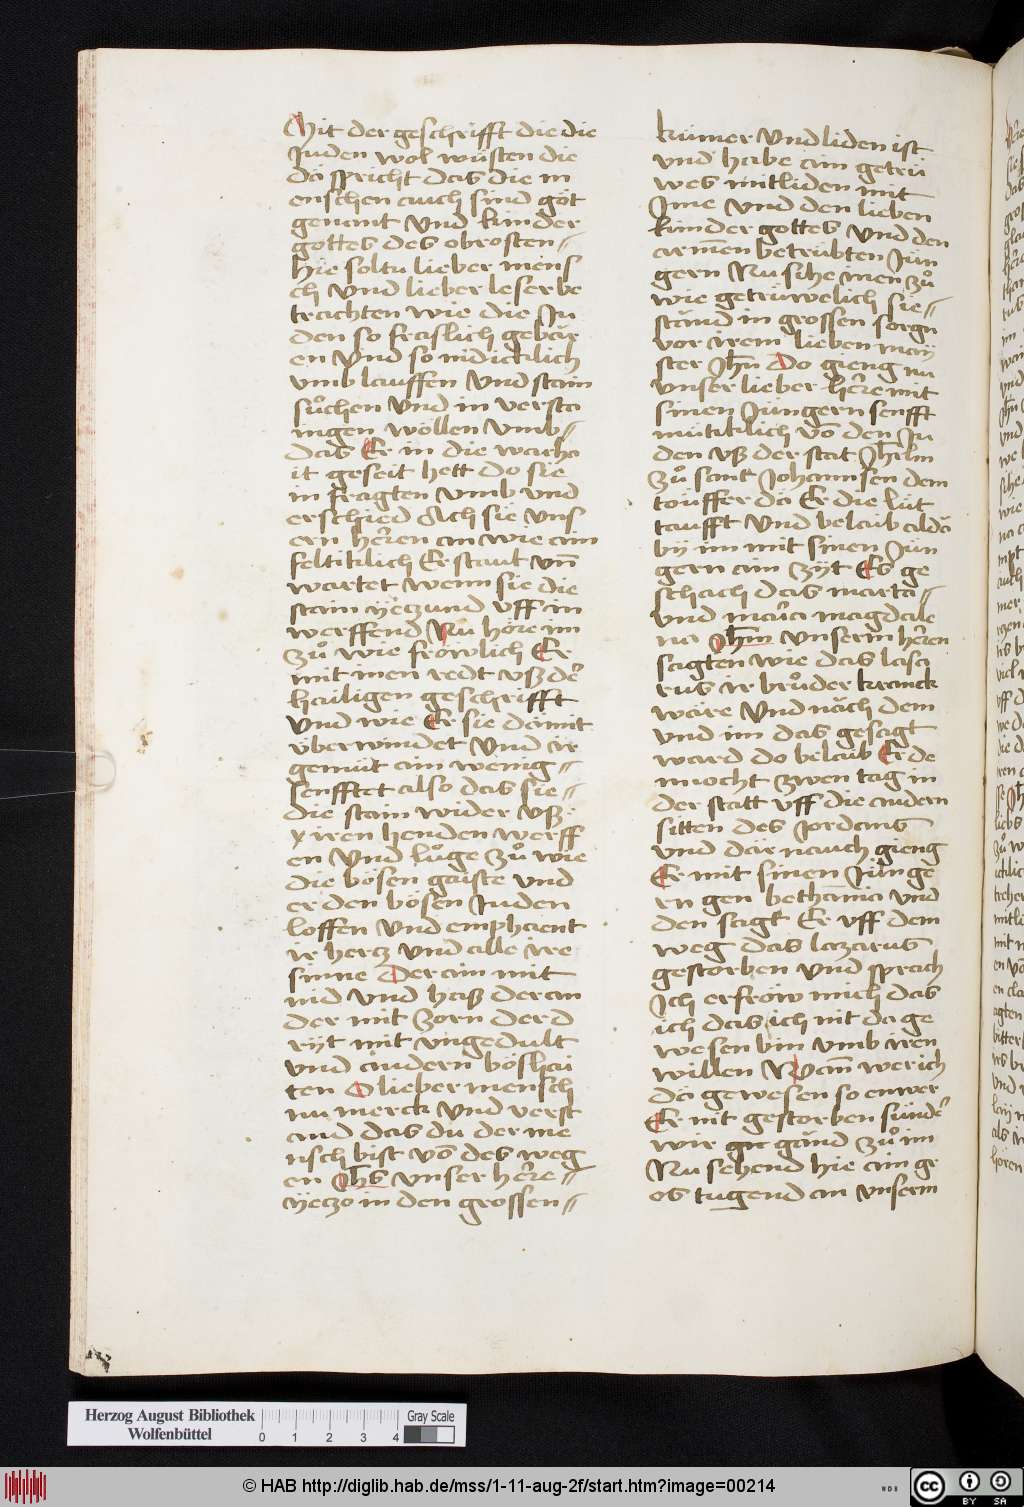 Mit der geschrifft die die
Juden wol wüsten die
da spricht das die m
enschen auch sind göt
genant vnd kinder
gottes des obrosten〃
hie soltu lieber mens
ch vnd lieber leser be
trachten wie die Ju
den so fraslich gebär
en vnd so nidicklich
vmb lauffen vnd stain
suͦchen vnd in versta
ingen wöllen vmb〃
das Er in die warha
it geseit hett do sie
in fragten vmb vnd
erschied Ach sie vns
ern herren an wie ain
feltiklich Er staut vn̄
wartet wenn sie die
stain yeczund vff in
werffend Nu höre im
zuͦ wie frölich Er
mit inen redt vsz der
hailigen geschrifft
vnd wie Er sie damit
überwindet vnd ir
gemüt ain wenig〃
senfftet also das sie〃
die stain wider vsz
iren henden werff
en vnd luͦge zuͦ wie
die bösen gaiste vnd
er den bösen Juden
loffen vnd emphaent
ir hercz vnd alle ire
sinne Der ain mit
nid vnd hasz der an
der mit zorn der d
ryt mit vngedult
vnd andern böshai
ten O lieber mensch
nu merck vnd verst
and das du der me
nsch bist vō des weg
en Jhs vnser here〃
yeczo in den grossen〃
kumer vnd liden ist
vnd habe ain getrü
wes mitliden mit
Jme vnd den lieben
kinder gottes vnd den
armen betrübten Jün
gern Nu sihe inen zuͦ
wie getrüwelich sie〃
stand in grossen sorgn
vor irem lieben maij
ster Jhn Do gieng nu
vnser lieber herre mit
sinen Jüngern senfft
mütiklich vō den Ju
den vsz der stat Jhrlm
zuͦ sant Johannsen dem
töuffer da Er die lüt
taufft vnd belaib alda
by im mit sinen Jün
gern ain zyt Es ge
schach das marta〃
vnd maria magdale
na Jhm vnserm herren
sagten wie das lasa
rus ir bruͦder kranck
wäre vnd nach dem
vnd im das gesagt
ward do belaib Er de
mnocht zwen tag in
der statt vff die andern
sitten des Jordans
vnd dar nauch gieng
Er mit sinen Jünge
rn gen bethania vnd
den sagt Er vff dem
weg das lazarus
gestorben vnd sprach
Ich erfröw mich das
ich das ich nit da ge
wesen bin vmb iren
willen Wann wer ich
da gewesen so enwer
Er nit gestorben sünder
wir gänd zuͦ im
Nu sehend hie ain gr
os tugend an vnserm
Herzog August Bibliothek
Wolfenbüttel
0 1 2 3 4
Gray Scale
© HAB http://diglib.hab.de/mss/1-11-aug-2f/start.htm?image=00214
WDB
cc BY SA